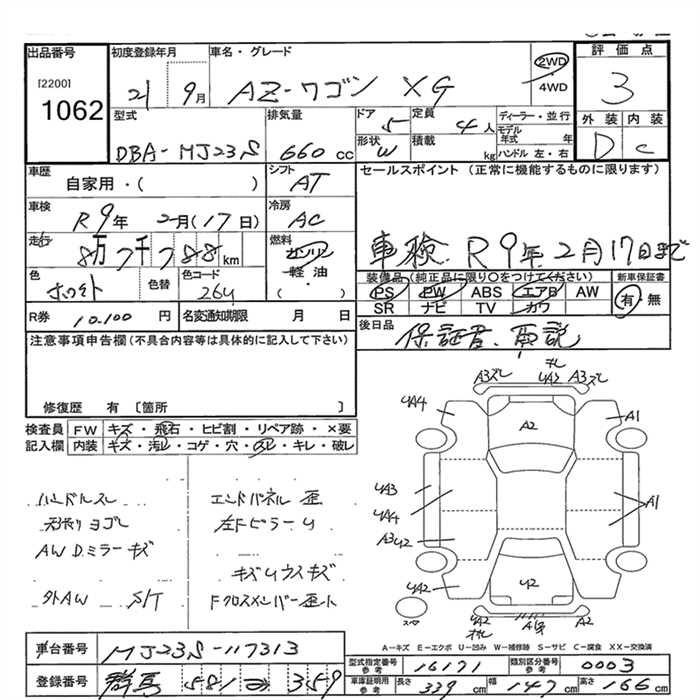 出品番号
[2200]
1062
初度登録年月
21 9月
車名・グレード
AZ-ワゴン XG
2WD
4WD
評価点
3
外装 内装
D C
型式
DBA-MJ23S
排気量
660 cc
ドア
5
定員
4人
形状
W
積載
kg
ディーラー・並行
モデル年式 年
ハンドル 左・右
車歴
自家用・( )
シフト
AT
セールスポイント (正常に機能するものに限ります)
車検 R9年2月17日まで
車検
R9年 2月(17日)
冷房
AC
走行
8万7千788km
燃料
ガソリン
軽油
( )
色
ホワイト
色替
色コード
26U
装備品(純正品に限り○をつけてください)
PS PW ABS エアB AW
SR ナビ TV カワ
新車保証書
有・無
R券
10.100 円
名変通知期限 月 日
後日品
保証書、取説
注意事項申告欄(不具合内容等は具体的に記入して下さい)
修復歴 有 〔箇所 〕
検査員記入欄
FW キズ・飛石・ヒビ割・リペア跡・×要
内装 キズ・汚レ・コゲ・穴・スレ・キレ・破レ
ハンドルスレ
天張りヨゴレ
AW D.ミラーキズ
外AW S/T
エンドパネル歪
左FピラーU
キズUウスキズ
Fクロスメンバー歪ト
A3ズレ
UA2
A3ズレ
UA4
A2
A1
UA3
UA4
A3U2
A1
UA2
U2
スペア
UA2
A-キズ E-エクボ U-凹み W-補修跡 S-サビ C-腐食 XX-交換済
車台番号
MJ23S-117313
登録番号
群馬 581 359
型式指定番号
参考
16171
類別区分番号
参考
0003
車庫証明用
参考
長さ 339cm
幅 147cm
高さ 166cm